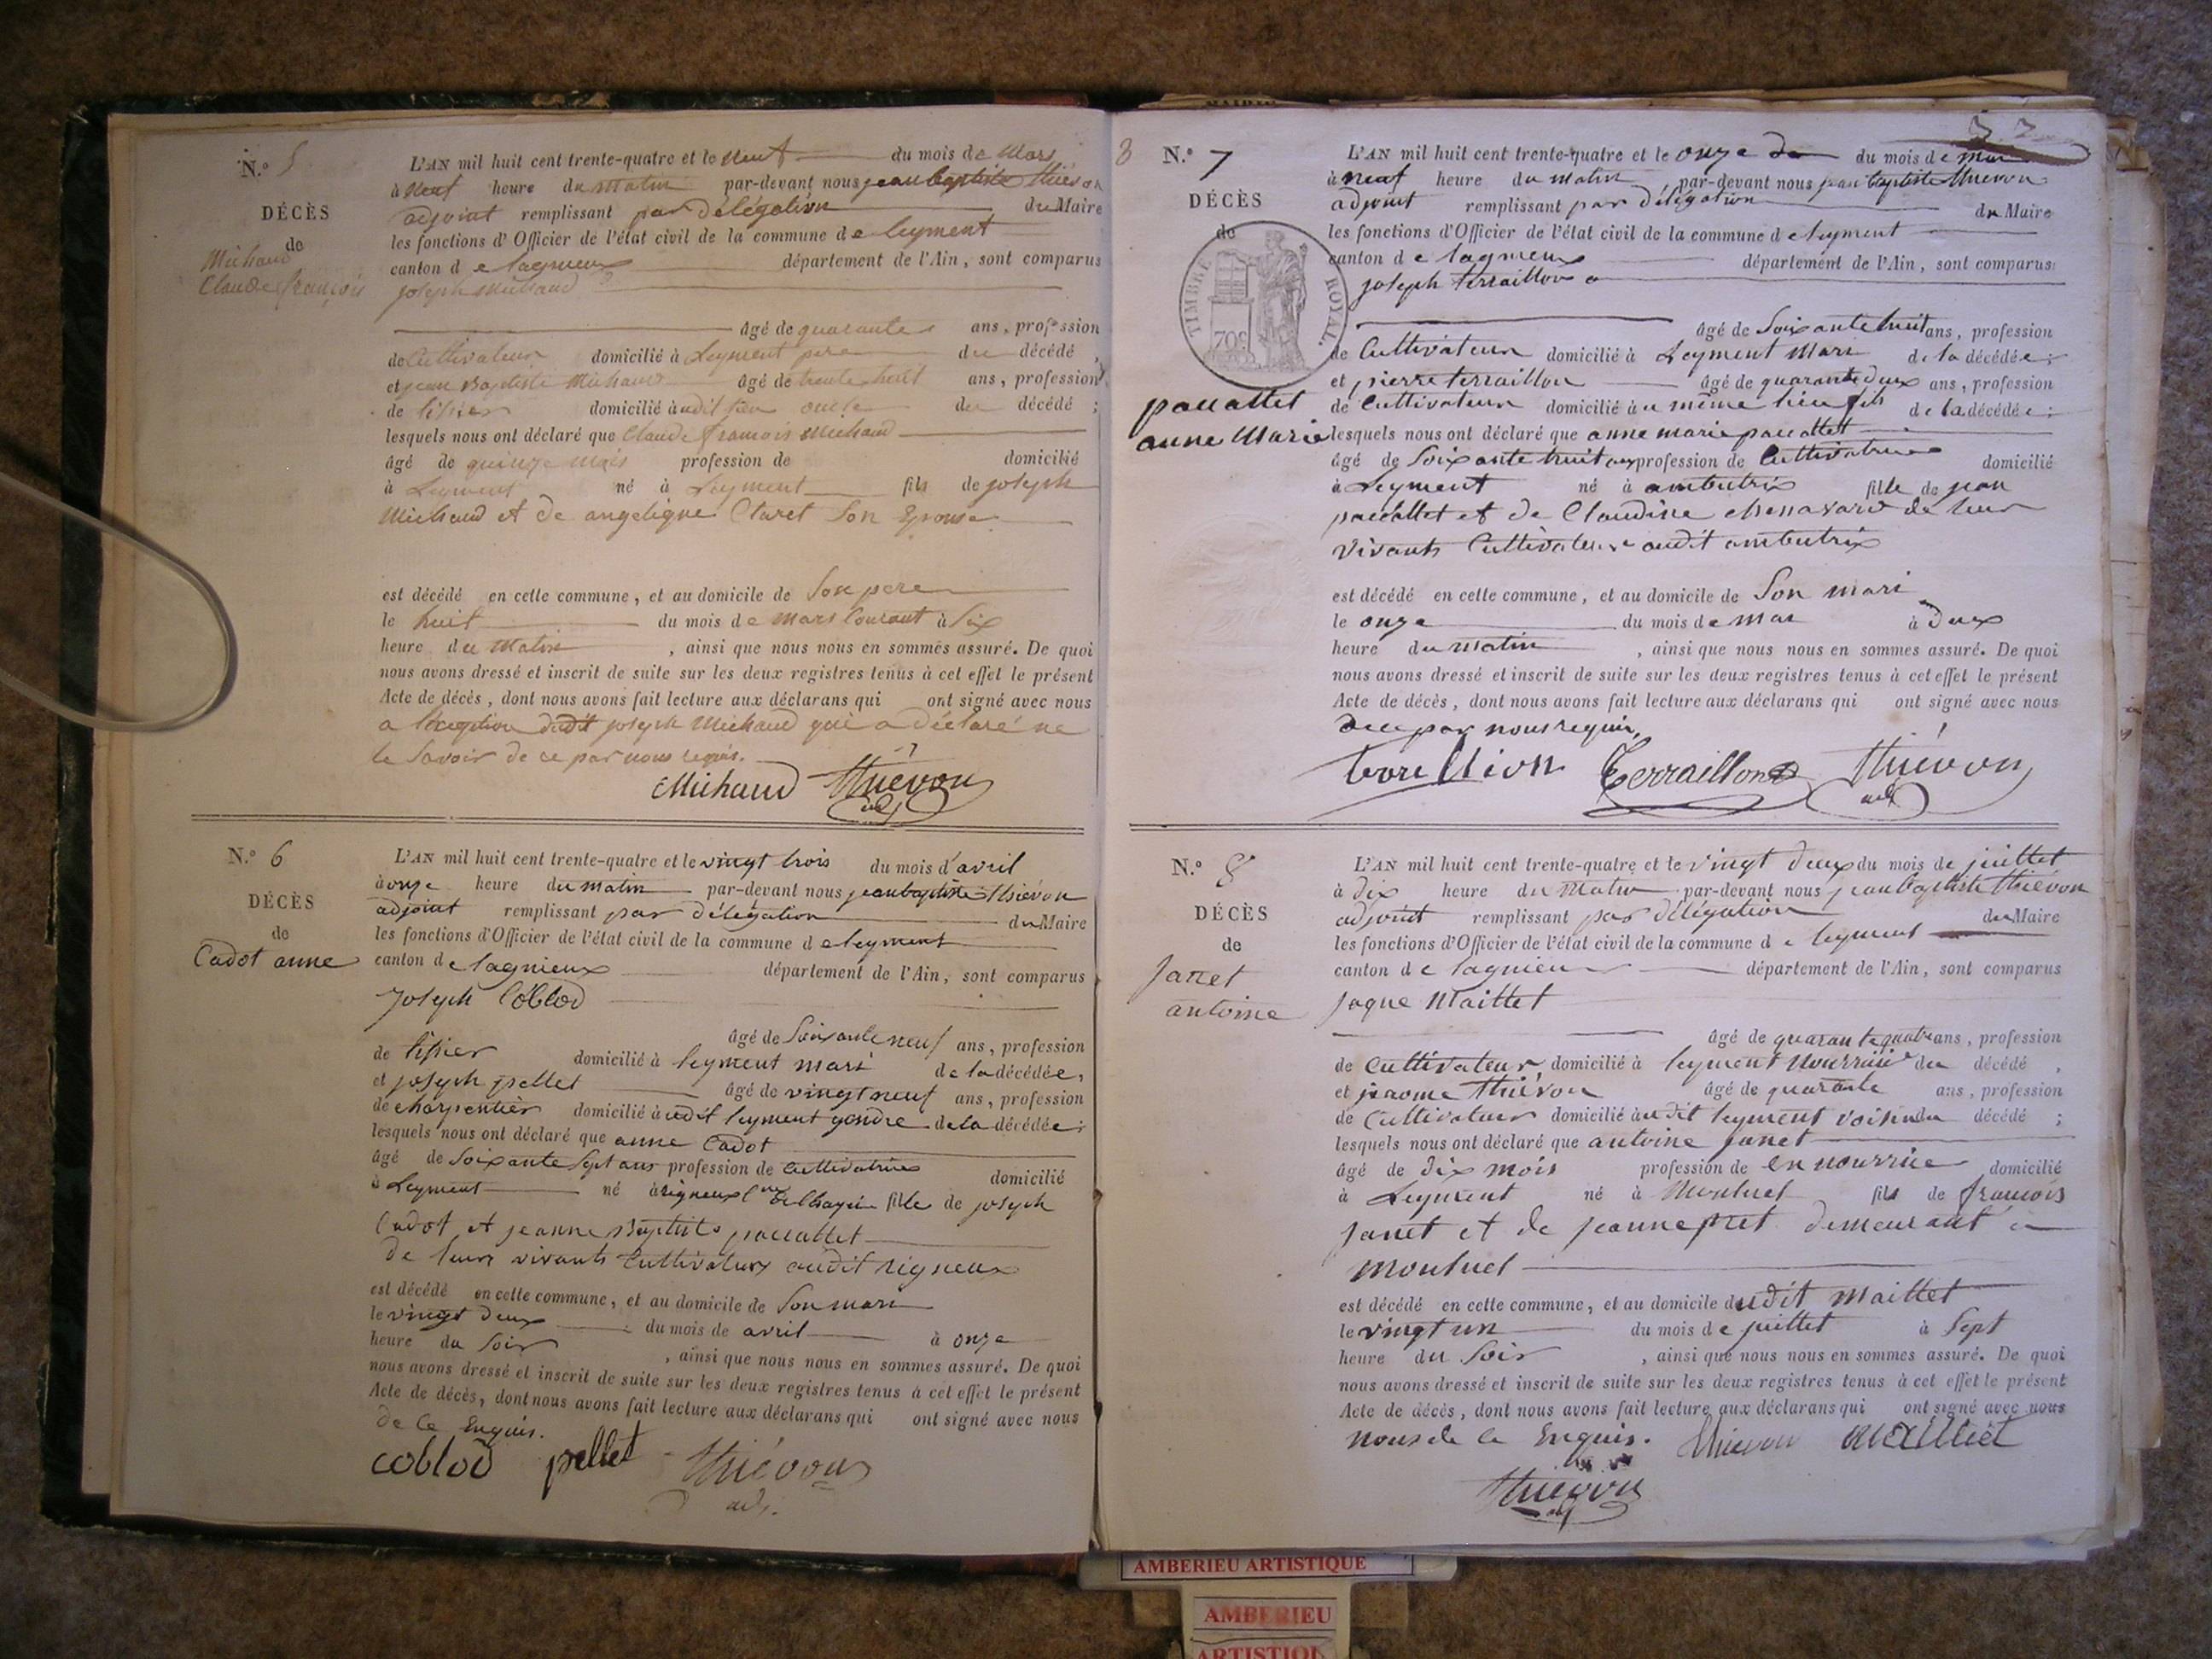 N.° 5
DÉCÈS
de
Michaud
Claude françois
L'AN mil huit cent trente-quatre et le neuf du mois de Mars
à neuf heure du matin par-devant nous jean baptiste thiévon
adjoint remplissant par délégation du Maire
les fonctions d'Officier de l'état civil de la commune de leyment
canton de lagnieux département de l'Ain, sont comparus
joseph Michaud
âgé de quarante ans, profession
de Cultivateur domicilié à Leyment pere du décédé,
et jean Baptiste Michaud âgé de trente huit ans, profession
de tissier domicilié audit lieu oncle du décédé;
lesquels nous ont déclaré que Claude francois Michaud
âgé de quinze mois profession de domicilié
à Leyment né à Leyment fils de joseph
Michaud et de angeligne Claret Son Epouse
est décédé en cette commune, et au domicile de Son pere
le huit du mois de Mars Courant à Six
heure du Matin, ainsi que nous nous en sommes assuré. De quoi
nous avons dressé et inscrit de suite sur les deux registres tenus à cet effet le présent
Acte de décès, dont nous avons fait lecture aux déclarans qui ont signé avec nous
a l'exception dudit joseph Michaud qui a déclaré ne
le Savoir de ce par nous requis.
Michaud thiévon
adj
N.° 6
DÉCÈS
de
Cadot anne
L'AN mil huit cent trente-quatre et le vingt trois du mois d'avril
à onze heure du matin par-devant nous jean baptiste thiévon
adjoint remplissant par délégation du Maire
les fonctions d'Officier de l'état civil de la commune de leyment
canton de lagnieux département de l'Ain, sont comparus
Joseph Coblod
âgé de Soixante neuf ans, profession
de tissier domicilié à leyment mari de la décédée,
et joseph pellet âgé de vingt neuf ans, profession
de charpentier domicilié audit leyment gendre de la décédée;
lesquels nous ont déclaré que anne Cadot
âgé de Soixante Sept ans profession de Cultivatrice domicilié
à Leyment né à rigneux fille de joseph
Cadot et jeanne Baptiste paccallet
de leurs vivants Cultivateurs audit rigneux
est décédé en cette commune, et au domicile de Son mari
le vingt deux du mois de avril à onze
heure du Soir, ainsi que nous nous en sommes assuré. De quoi
nous avons dressé et inscrit de suite sur les deux registres tenus à cet effet le présent
Acte de décès, dont nous avons fait lecture aux déclarans qui ont signé avec nous
de Ce Enquis.
coblod pellet thiévon
adj.
8
N.° 7
DÉCÈS
de
TIMBRE ROYAL
70c
paccallet
anne Marie
L'AN mil huit cent trente-quatre et le onze de du mois de mai
à neuf heure du matin par-devant nous jean baptiste thiévon
adjoint remplissant par délégation du Maire
les fonctions d'Officier de l'état civil de la commune de leyment
canton de lagnieux département de l'Ain, sont comparus
joseph terraillon
âgé de Soixante huit ans, profession
de Cultivateur domicilié à Leyment Mari de la décédée;
et pierre terraillon âgé de quarante deux ans, profession
de Cultivateur domicilié au même lieu fils de la décédée;
lesquels nous ont déclaré que anne marie paccallet
âgé de Soixante huit ans profession de Cultivatrice domicilié
à Leyment né à ambutrix fille de jean
paccallet et de Claudine chenavard de leur
vivants Cultivateurs audit ambutrix
est décédé en cette commune, et au domicile de Son mari
le onze du mois de mai à deux
heure du matin, ainsi que nous nous en sommes assuré. De quoi
nous avons dressé et inscrit de suite sur les deux registres tenus à cet effet le présent
Acte de décès, dont nous avons fait lecture aux déclarans qui ont signé avec nous
de ce par nous requis,
Terraillon thiévon
adj
N.° 8
DÉCÈS
de
Janet
antoine
L'AN mil huit cent trente-quatre et le vingt deux du mois de juillet
à dix heure du Matin par-devant nous jean baptiste thiévon
adjoint remplissant par délégation du Maire
les fonctions d'Officier de l'état civil de la commune de leyment
canton de lagnieux département de l'Ain, sont comparus
jaque Maillet
âgé de quarante quatre ans, profession
de Cultivateur domicilié à leyment nourricié du décédé,
et jerome thiévon âgé de quarante ans, profession
de Cultivateur domicilié audit leyment voisin du décédé;
lesquels nous ont déclaré que antoine janet
âgé de dix mois profession de en nourrice domicilié
à Leyment né à Montuel fils de francois
janet et de jeanne pret demeurant à
Montuel
est décédé en cette commune, et au domicile dudit Maillet
le vingt un du mois de juillet à Sept
heure du Soir, ainsi que nous nous en sommes assuré. De quoi
nous avons dressé et inscrit de suite sur les deux registres tenus à cet effet le présent
Acte de décès, dont nous avons fait lecture aux déclarans qui ont signé avec nous
nous de ce Enquis. thievon Mailliet
thiévon
adj
AMBERIEU ARTISTIQUE
AMBERIEU
ARTISTIQUE